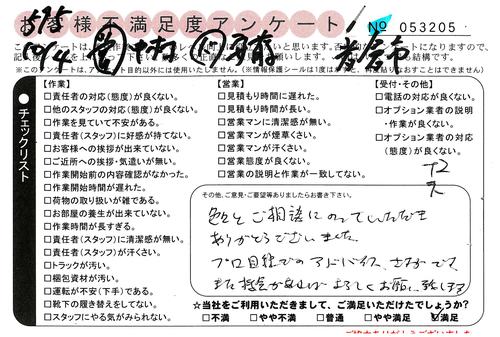 お客様不満足度アンケート
№ 053205
チェックリスト
【作業】
□責任者の対応(態度)が良くない。
□他のスタッフの対応(態度)が良くない。
□作業を見ていて不安がある。
□責任者(スタッフ)に好感が持てない。
□お客様への挨拶が出来ていない。
□ご近所への挨拶・気遣いが無い。
□作業開始前の内容確認がなかった。
□作業開始時間が遅れた。
□荷物の取り扱いが雑である。
□お部屋の養生が出来ていない。
□作業時間が長すぎる。
□責任者(スタッフ)に清潔感が無い。
□責任者(スタッフ)が汗くさい。
□トラックが汚い。
□梱包資材が汚い。
□運転が不安(下手)である。
□靴下の履き替えをしてない。
□スタッフにやる気がみられない。
【営業】
□見積もり時間に遅れた。
□見積もり時間が長い。
□営業マンに清潔感が無い。
□営業マンが煙草くさい。
□営業マンが汗くさい。
□営業態度が良くない。
□営業の説明と作業が一致してない。
【受付・その他】
□電話の対応が良くない。
□オプション業者の説明
・作業が良くない。
□オプション業者の対応
(態度)が良くない。
その他、ご意見・ご要望等ありましたらお書き下さい。
色々とご相談にのっていただき
ありがとうございました。
プロ目線でのアドバイス、さすがです。
また機会があれば よろしくお願い致します
☆当社をご利用いただきまして、ご満足いただけたでしょうか?
□不満 □やや不満 □普通 □やや満足 ☑満足